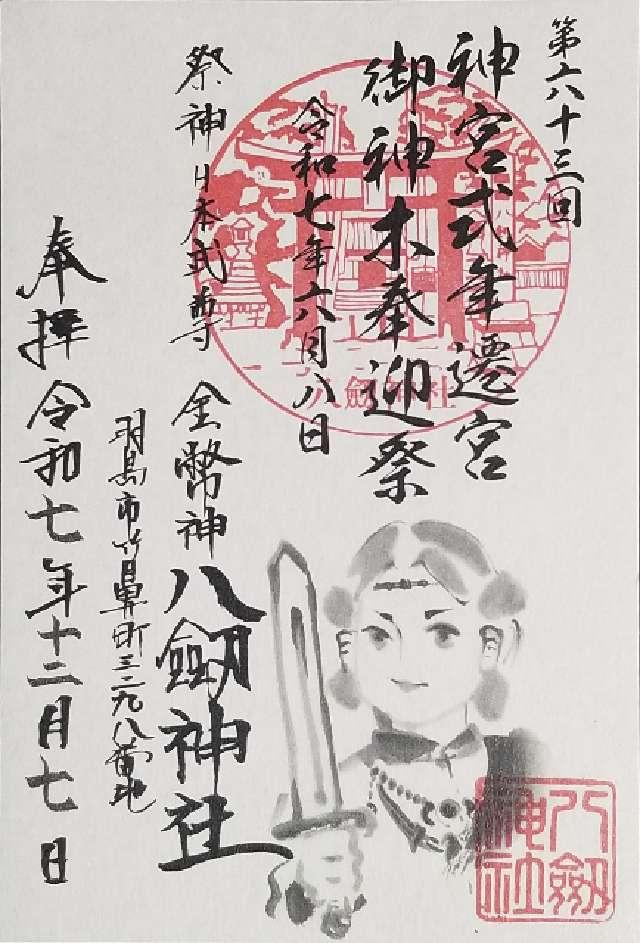 第六十三回
神宮式年遷宮
御神木奉迎祭
令和七年六月八日
祭神日本武尊
金幣神
八劔神社
羽島市竹鼻町三二九八番地
奉拝令和七年十二月七日
八劔神社
八劔
神社